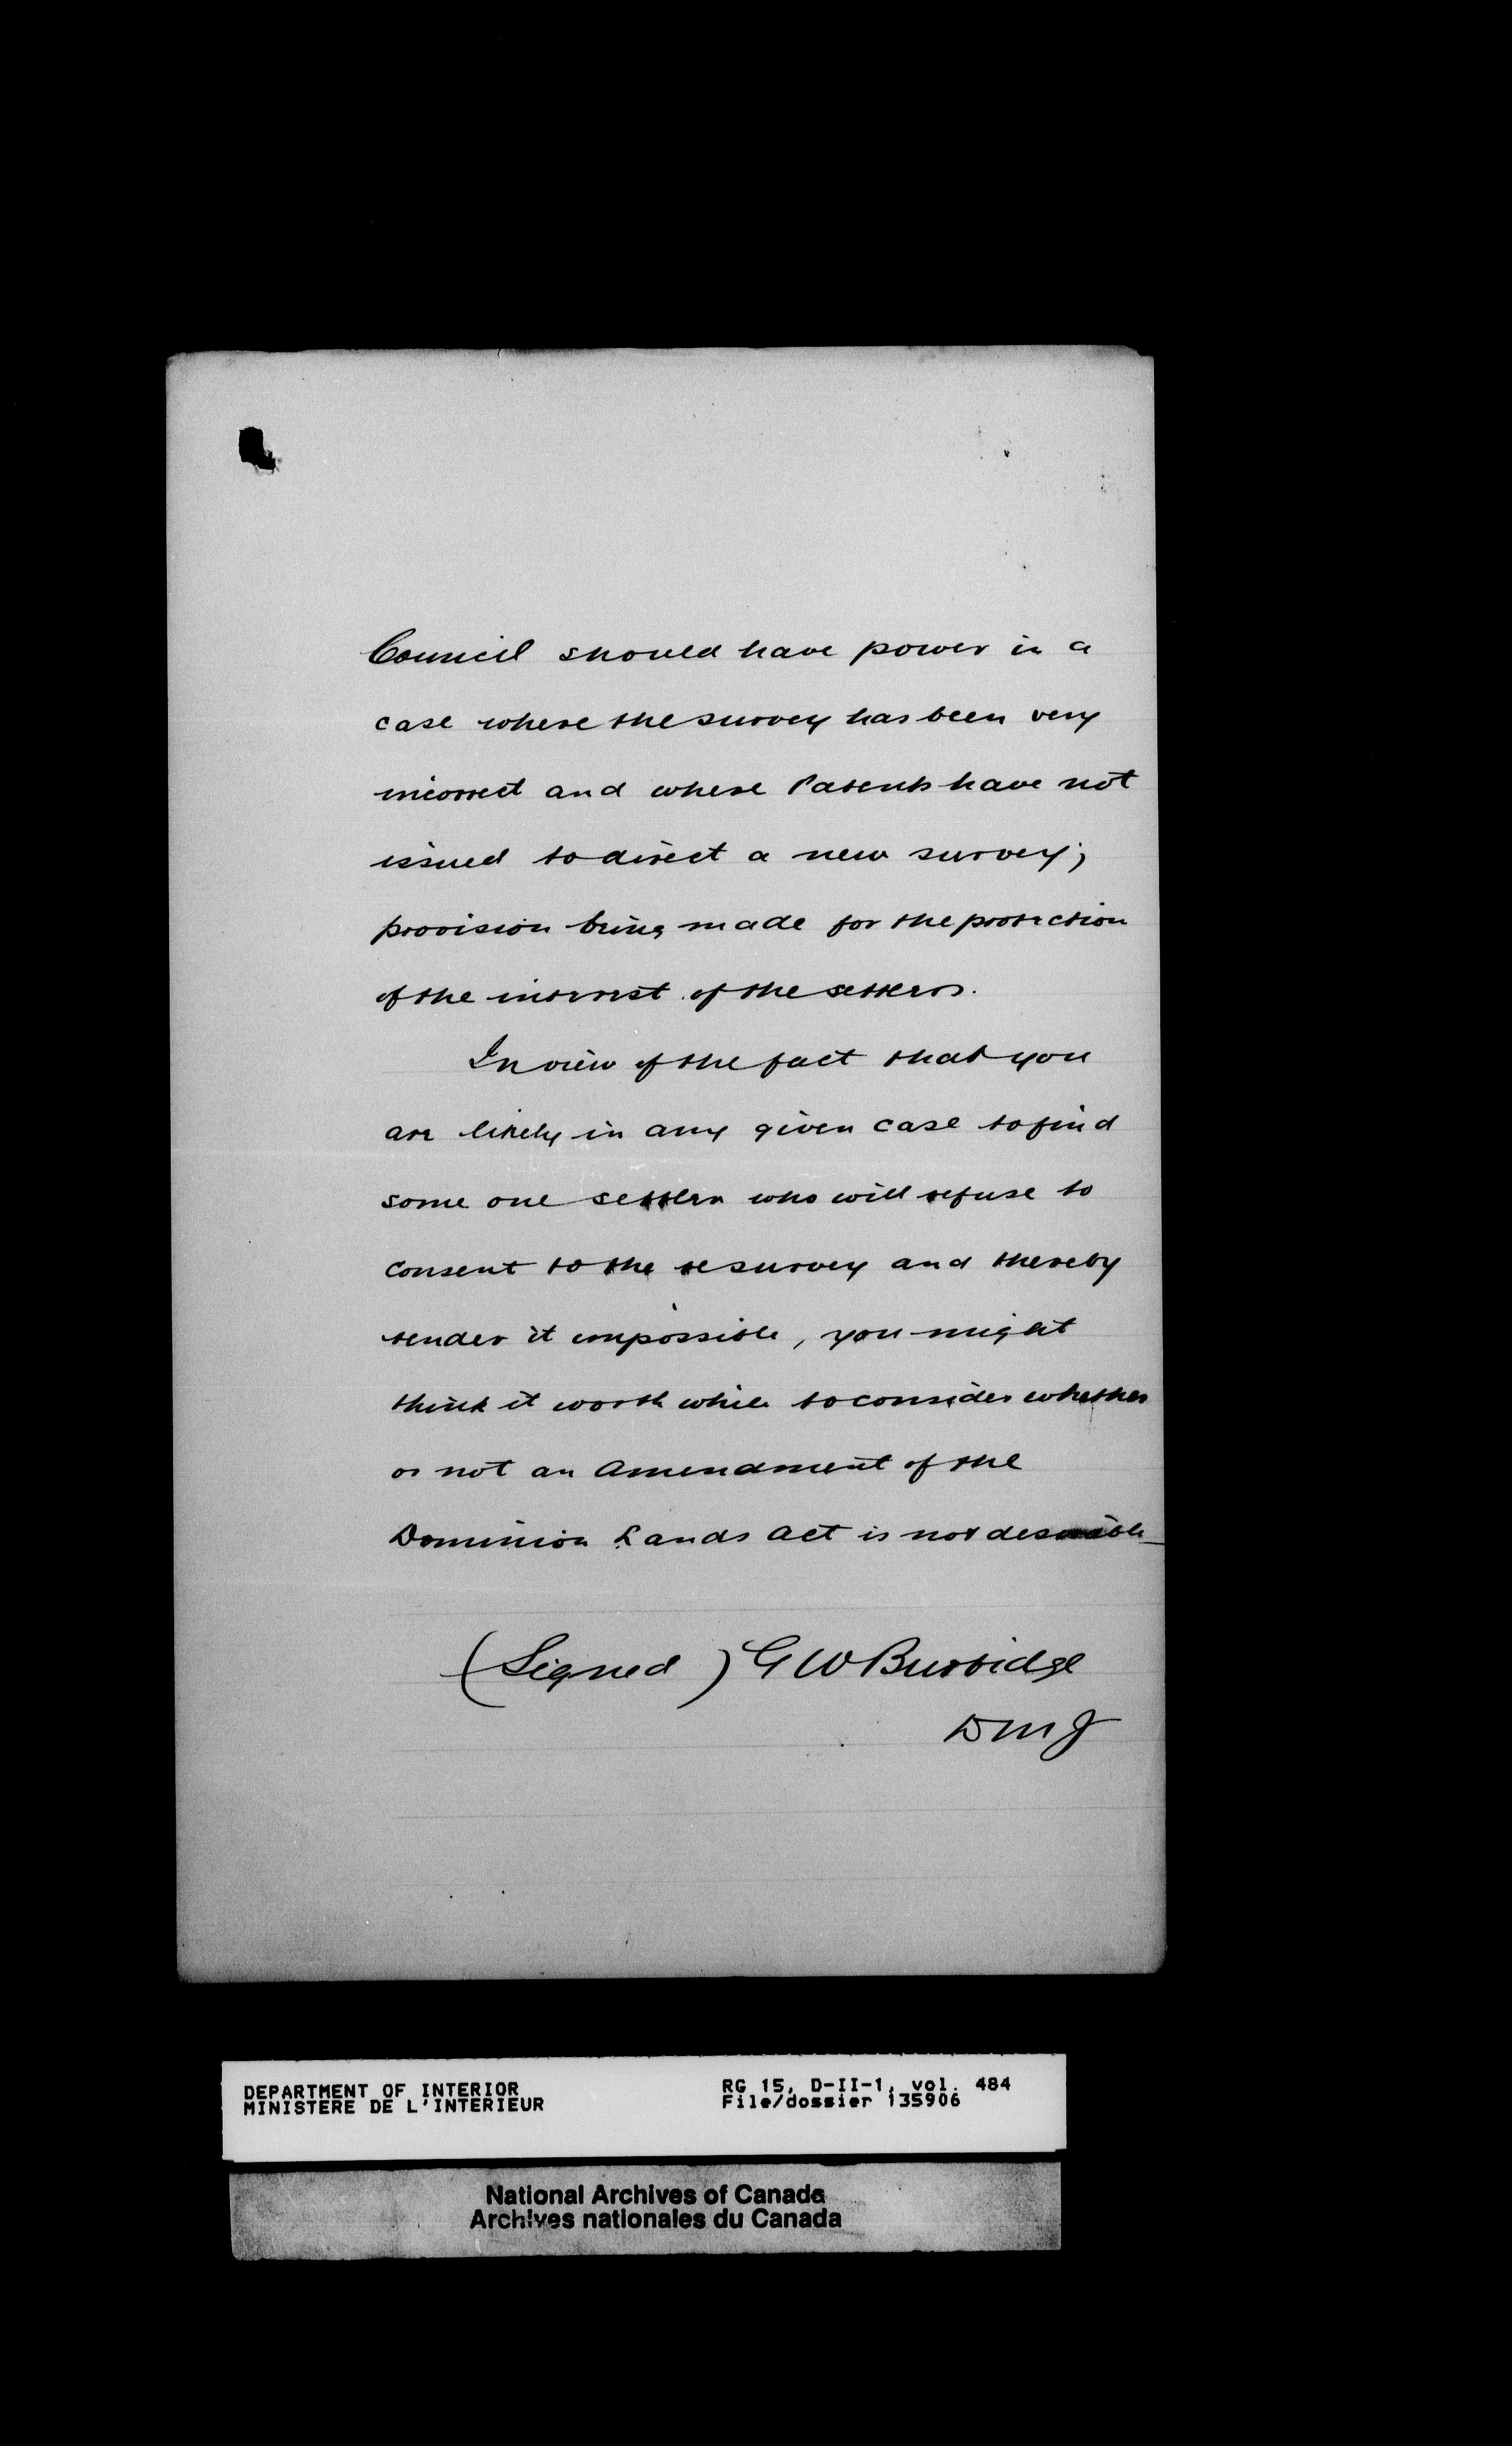 Council should have power in a
case where the survey has been very
incorrect and where Patents have not
issued to direct a new survey;
provision being made for the protection
of the interest of the settlers.
In view of the fact that you
are likely in any given case to find
some one settler who will refuse to
consent to the resurvey and thereby
render it impossible, you might
think it worth while to consider whether
or not an Amendment of the
Dominion Lands Act is not desirable
(Signed) G W Burbidge
DMJ
DEPARTMENT OF INTERIOR
MINISTERE DE L'INTERIEUR
RG 15, D-II-1, vol. 484
File/dossier 135906
National Archives of Canada
Archives nationales du Canada